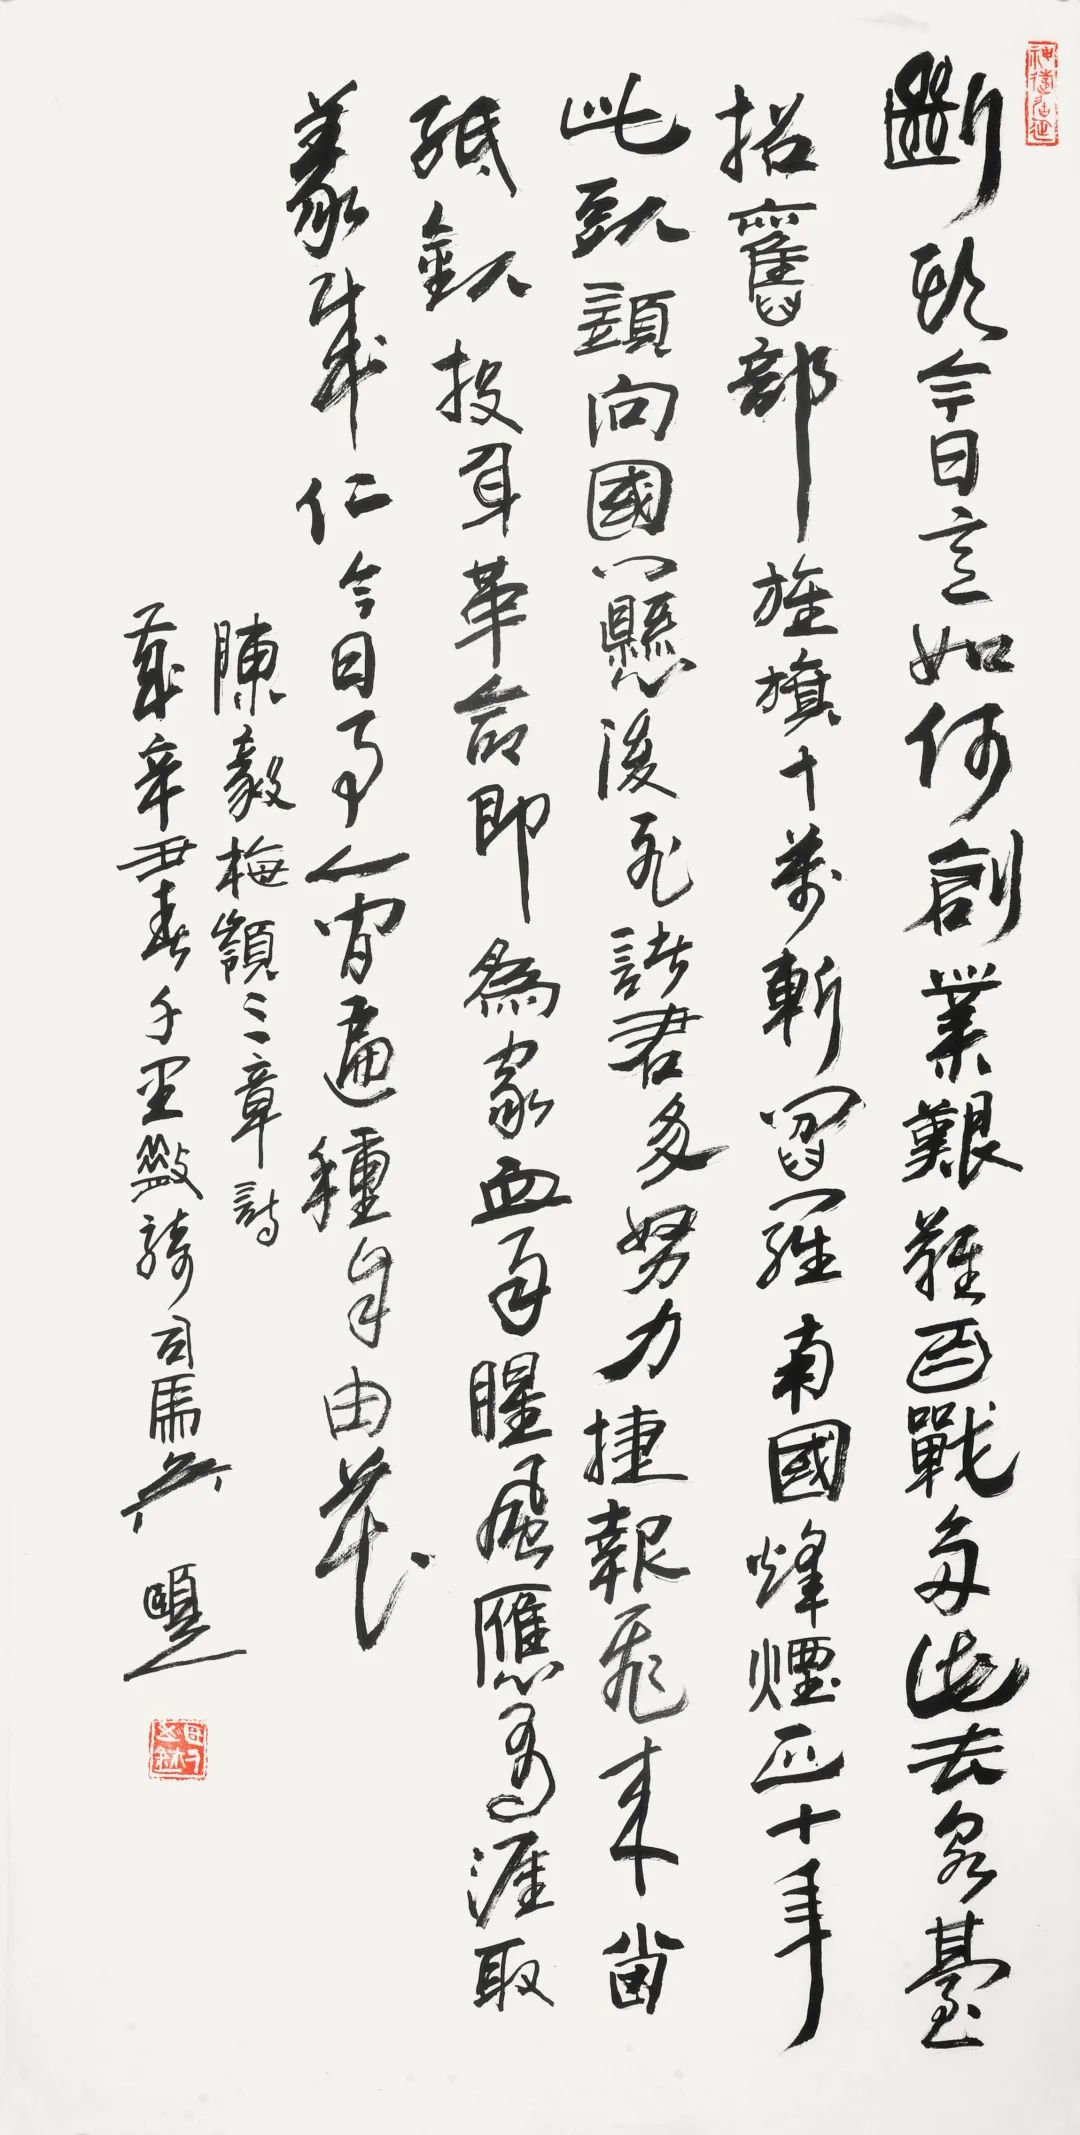 斷頭今日意如何創業艱難百戰多此去泉臺
招舊部旌旗十萬斬閻羅南國烽煙正十年
此頭須向國門懸後死諸君多努力捷報飛來當
紙錢投身革命即為家血雨腥風應有涯取
義成仁今日事人間遍種自由花
陳毅梅嶺三章詩
歲辛丑春千里騎司馬題